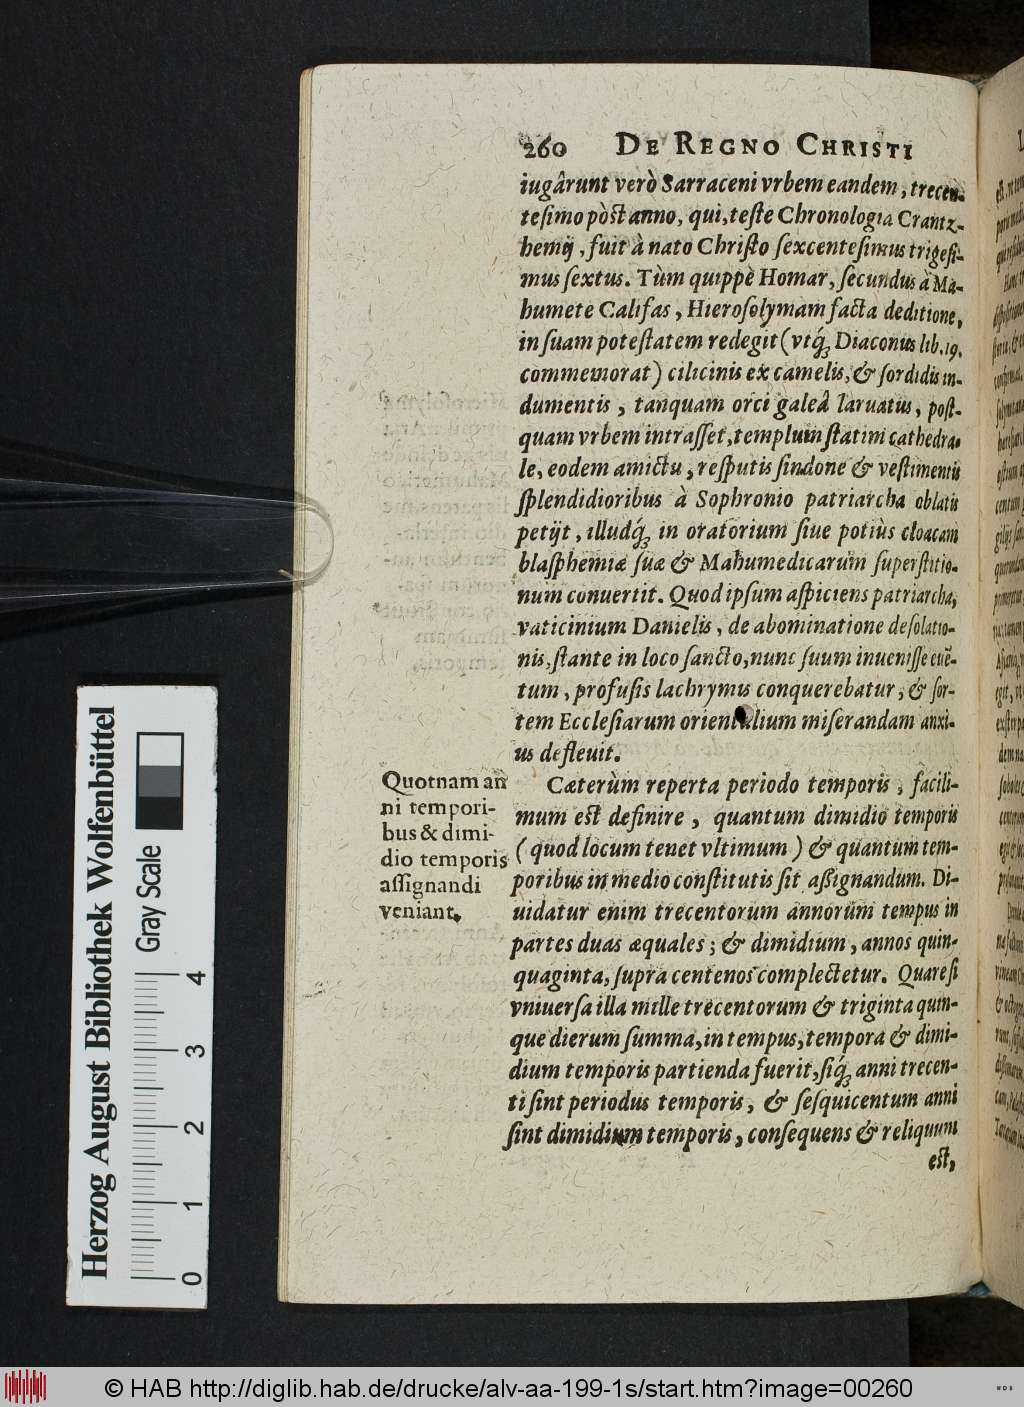 260 DE REGNO CHRISTI
iugârunt verò Sarraceni vrbem eandem, trecen-
tesimo pòst anno, qui, teste Chronologia Crantz-
hemij, fuit à nato Christo sexcentesimus trigesi-
mus sextus. Tùm quippè Homar, secundus à Ma-
humete Califas, Hierosolymam facta deditione,
in suam potestatem redegit (vtq́; Diaconus lib. 19.
commemorat) cilicinis ex camelis, & sordidis in-
dumentis, tanquam orci galeâ laruatus, post-
quam vrbem intrasset, templum statim cathedra-
le, eodem amictu, resputis sindone & vestimentis
splendidioribus à Sophronio patriarcha oblatis
petijt, illudq́; in oratorium siue potiùs cloacam
blasphemiæ suæ & Mahumedicarum superstitio-
num conuertit. Quod ipsum aspiciens patriarcha,
vaticinium Danielis, de abominatione desolatio-
nis, stante in loco sancto, nunc suum inuenisse euẽ-
tum, profusis lachrymis conquerebatur, & sor-
tem Ecclesiarum orientalium miserandam anxi-
us defleuit.
Quotnam an
ni tempori-
bus & dimi-
dio temporis
assignandi
veniant.
Cæterùm reperta periodo temporis, facili-
mum est definire, quantum dimidio temporis
(quod locum tenet vltimum) & quantum tem-
poribus in medio constitutis sit assignandum. Di-
uidatur enim trecentorum annorum tempus in
partes duas æquales; & dimidium, annos quin-
quaginta, supra centenos complectetur. Quare si
vniuersa illa mille trecentorum & triginta quin-
que dierum summa, in tempus, tempora & dimi-
dium temporis partienda fuerit, siq́; anni trecen-
ti sint periodus temporis, & sesquicentum anni
sint dimidium temporis, consequens & reliquum
est,
Herzog August Bibliothek Wolfenbüttel
Gray Scale
0 1 2 3 4
© HAB http://diglib.hab.de/drucke/alv-aa-199-1s/start.htm?image=00260